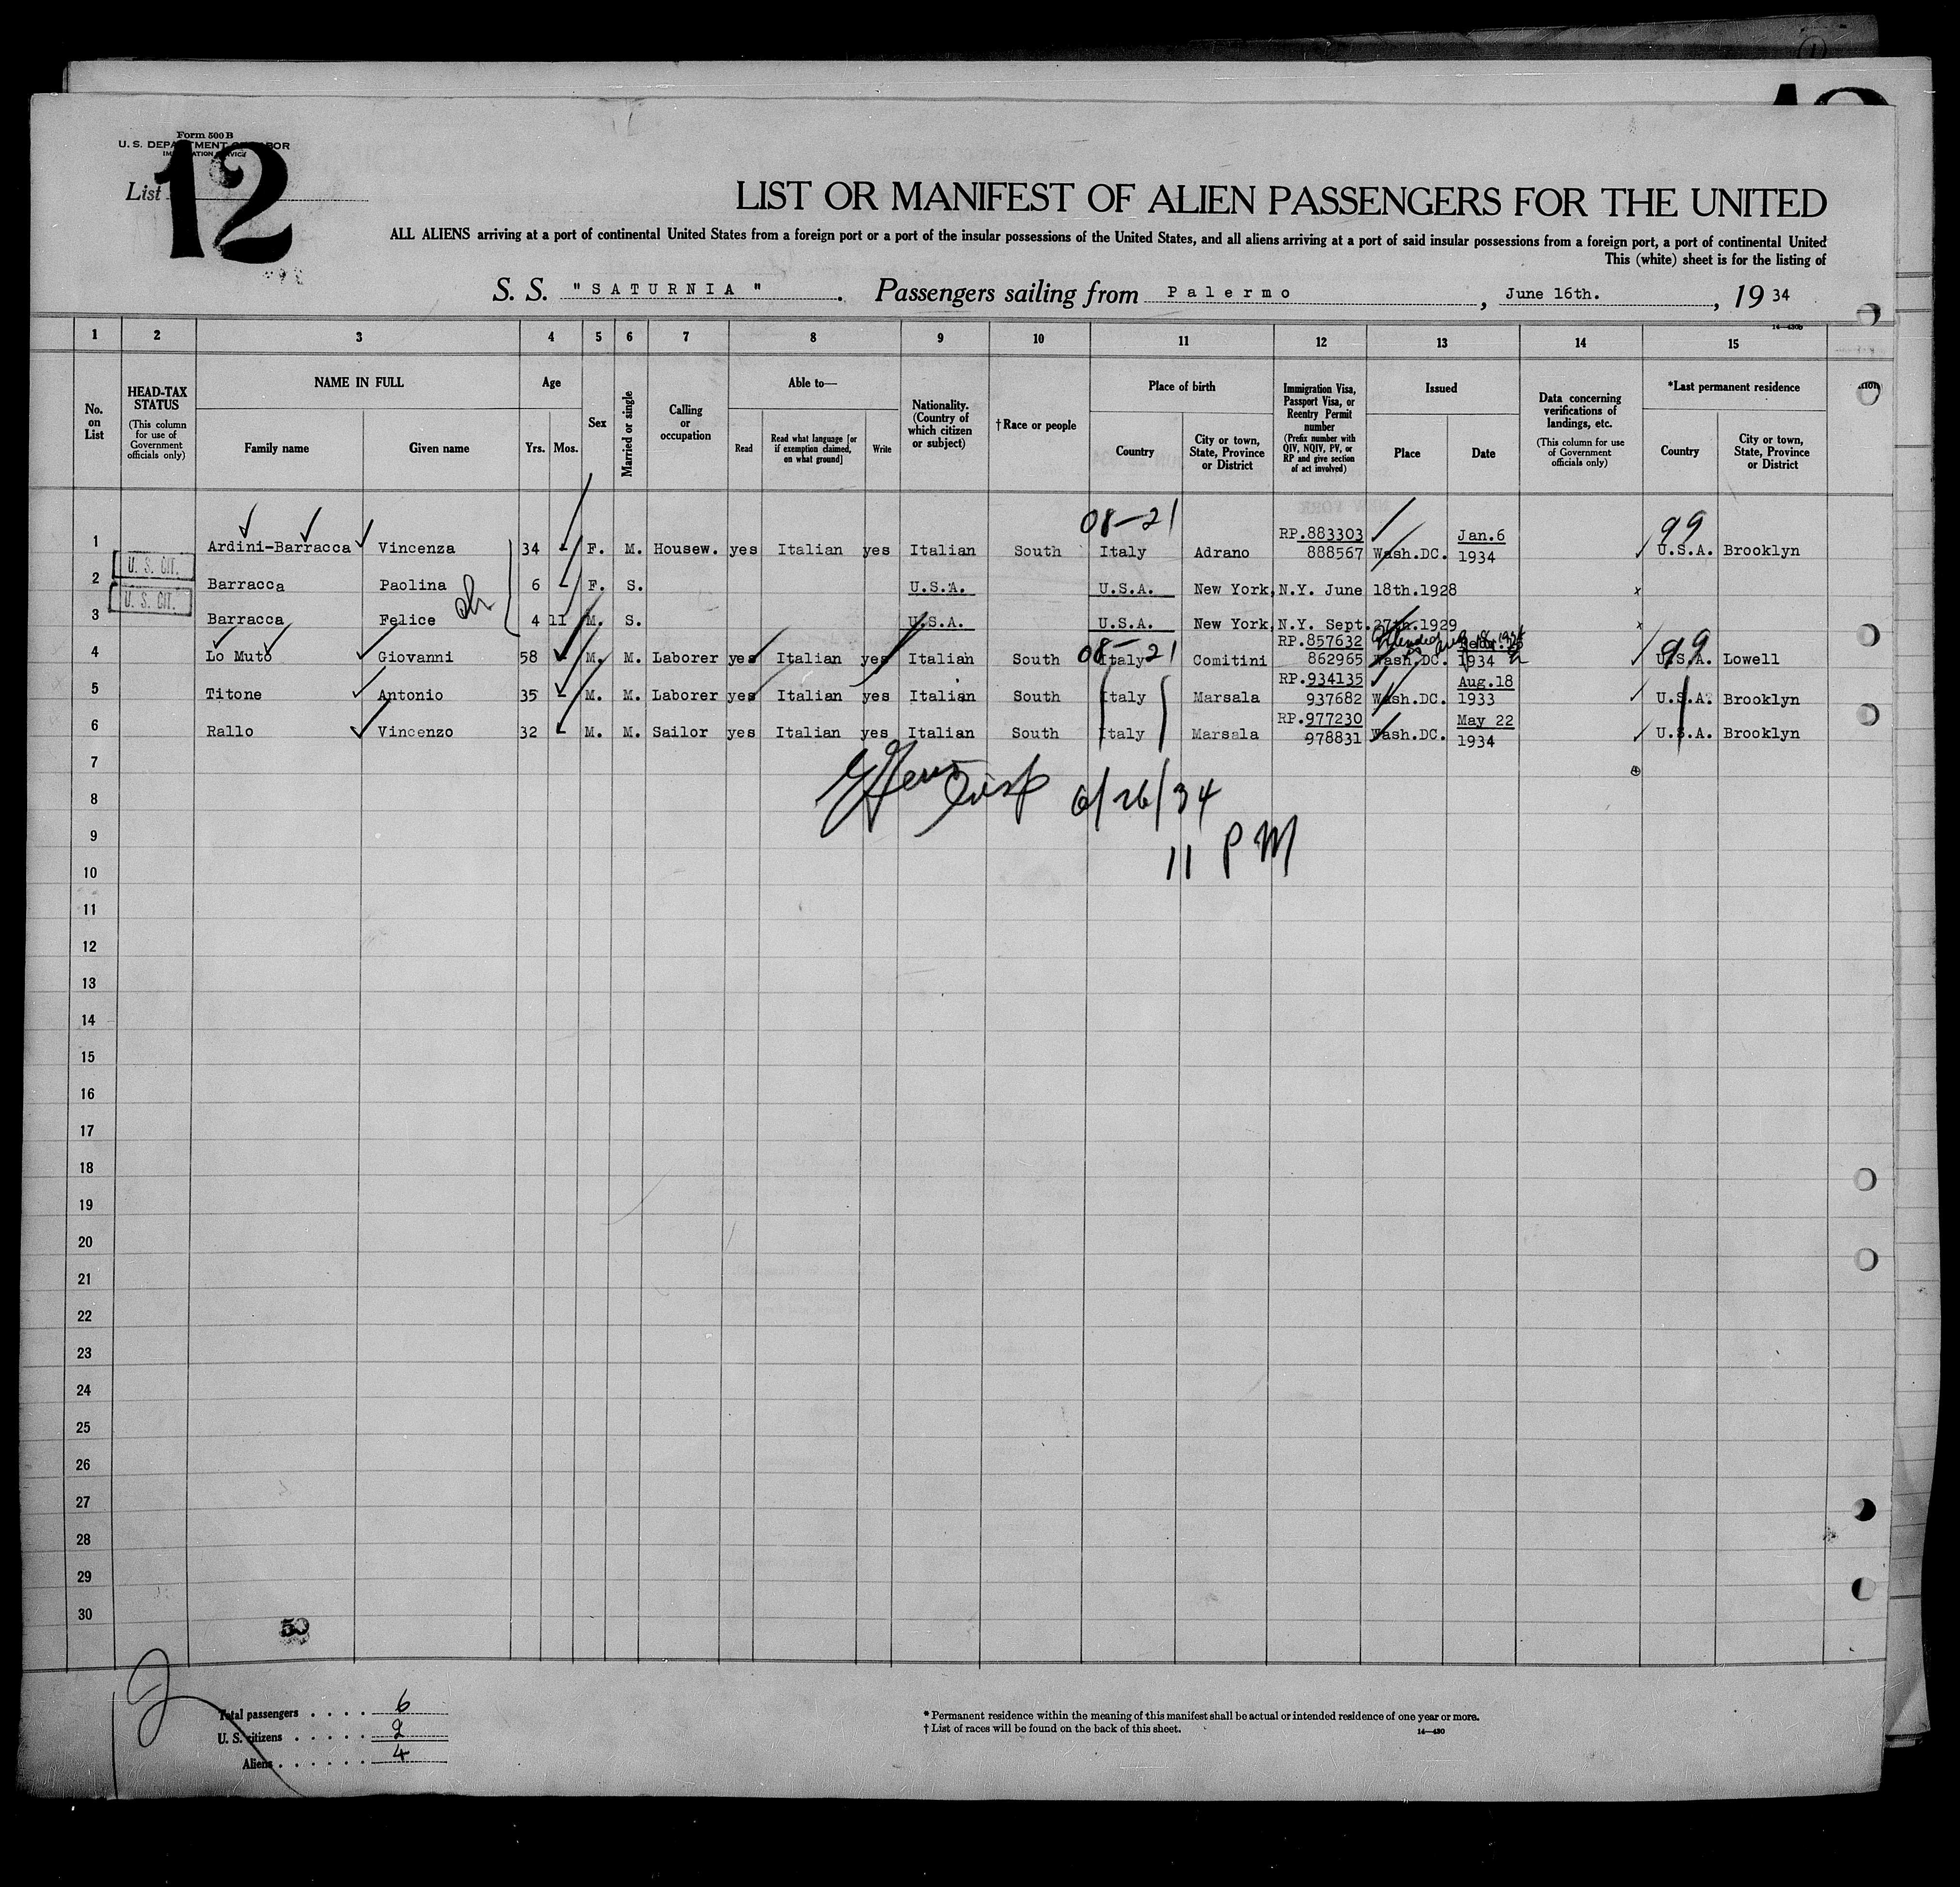 Form 500 B
U. S. DEPARTMENT OF LABOR
IMMIGRATION SERVICE
List 12
LIST OR MANIFEST OF ALIEN PASSENGERS FOR THE UNITED
ALL ALIENS arriving at a port of continental United States from a foreign port or a port of the insular possessions of the United States, and all aliens arriving at a port of said insular possessions from a foreign port, a port of continental United
This (white) sheet is for the listing of
S. S. "SATURNIA". Passengers sailing from Palermo, June 16th., 1934
14—430b
1 2 3 4 5 6 7 8 9 10 11 12 13 14 15
No. on List
HEAD-TAX STATUS (This column for use of Government officials only)
NAME IN FULL
Family name Given name
Age
Yrs. Mos.
Sex
Married or single
Calling or occupation
Able to—
Read Read what language [or if exemption claimed, on what ground] Write
Nationality. (Country of which citizen or subject)
†Race or people
Place of birth
Country City or town, State, Province or District
Immigration Visa, Passport Visa, or Reentry Permit number (Prefix number with QIV, NQIV, PV, or RP and give section of act involved)
Issued
Place Date
Data concerning verifications of landings, etc. (This column for use of Government officials only)
*Last permanent residence
Country City or town, State, Province or District
08-21 99
1 Ardini-Barracca Vincenza 34 F. M. Housew. yes Italian yes Italian South Italy Adrano RP.883303 888567 Wash.DC. Jan.6 1934 U.S.A. Brooklyn
U. S. CIT.
2 Barracca Paolina 6 F. S. U.S.A. U.S.A. New York, N.Y. June 18th.1928 x
U. S. CIT.
3 Barracca Felice 4 11 M. S. U.S.A. U.S.A. New York, N.Y. Sept.27th.1929 x
08-21 99
4 Lo Muto Giovanni 58 M. M. Laborer yes Italian yes Italian South Italy Comitini RP.857632 862965 Wash.DC. 1934 U.S.A. Lowell
5 Titone Antonio 35 M. M. Laborer yes Italian yes Italian South Italy Marsala RP.934135 937682 Wash.DC. Aug.18 1933 U.S.A. Brooklyn
6 Rallo Vincenzo 32 M. M. Sailor yes Italian yes Italian South Italy Marsala RP.977230 978831 Wash.DC. May 22 1934 U.S.A. Brooklyn
7
8
6/26/34
9
11 PM
10
11
12
13
14
15
16
17
18
19
20
21
22
23
24
25
26
27
28
29
30
50
Total passengers . . . . 6
U. S. citizens . . . . . 2
Aliens . . . . . . 4
* Permanent residence within the meaning of this manifest shall be actual or intended residence of one year or more.
† List of races will be found on the back of this sheet.
14—430